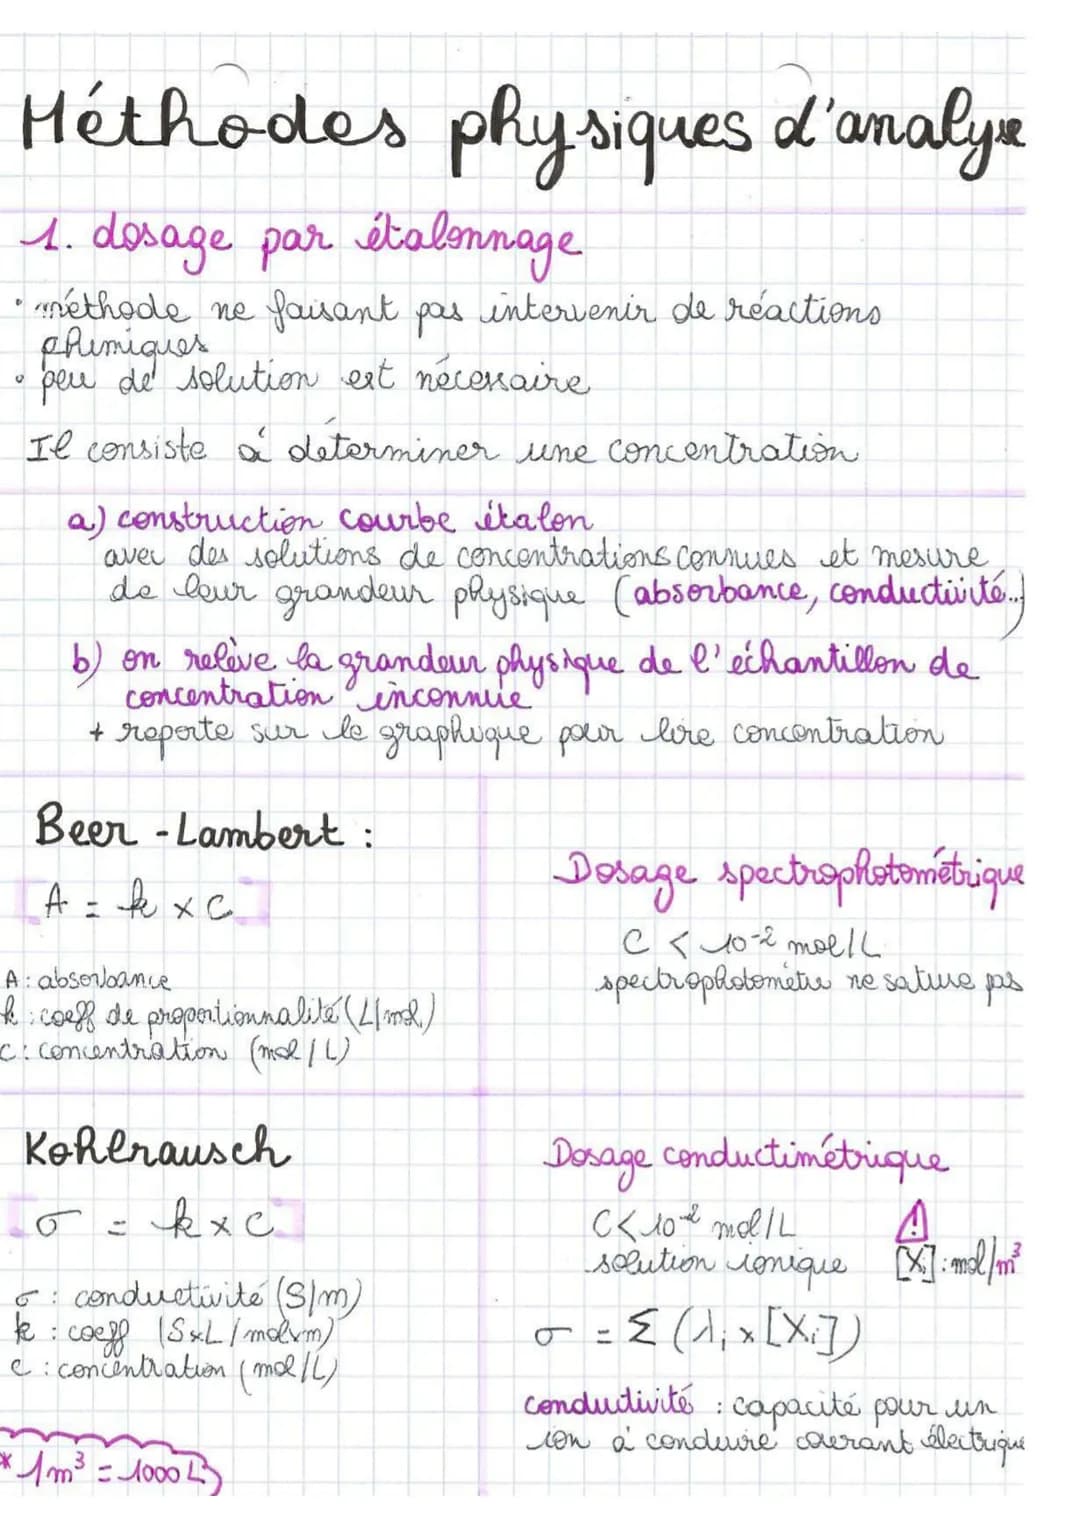 Méthodes physiques d'analyse
1. dosage par étalonnage
• méthode ne faisant pas intervenir de réactions
chimiques
• peu de solution est nécessaire
Il consiste à déterminer une concentration
a) construction courbe étalon
avec des solutions de concentrations connues et mesure
de leur grandeur physique (absorbance, conductivité...)
b) on relève la grandeur physique de l'échantillon de
concentration inconnue
+ reporte sur le graphique pour lire concentration
Beer-Lambert :
[A = k × C]
A : absorbance
k : coeff de proportionnalité (L/mol)
C : concentration (mol/L)
Dosage spectrophotométrique
C < 10⁻² mol/L
spectrophotomètre ne sature pas
Kohlrausch
[σ = k × C]
σ : conductivité (S/m)
k : coeff (S×L/mol×m)
c : concentration (mol/L)
* 1m³ = 1000 L
Dosage conductimétrique
C < 10⁻² mol/L
solution ionique
⚠ [Xi] : mol/m³
σ = Σ (λi × [Xi])
conductivité : capacité pour un
ion à conduire courant électrique